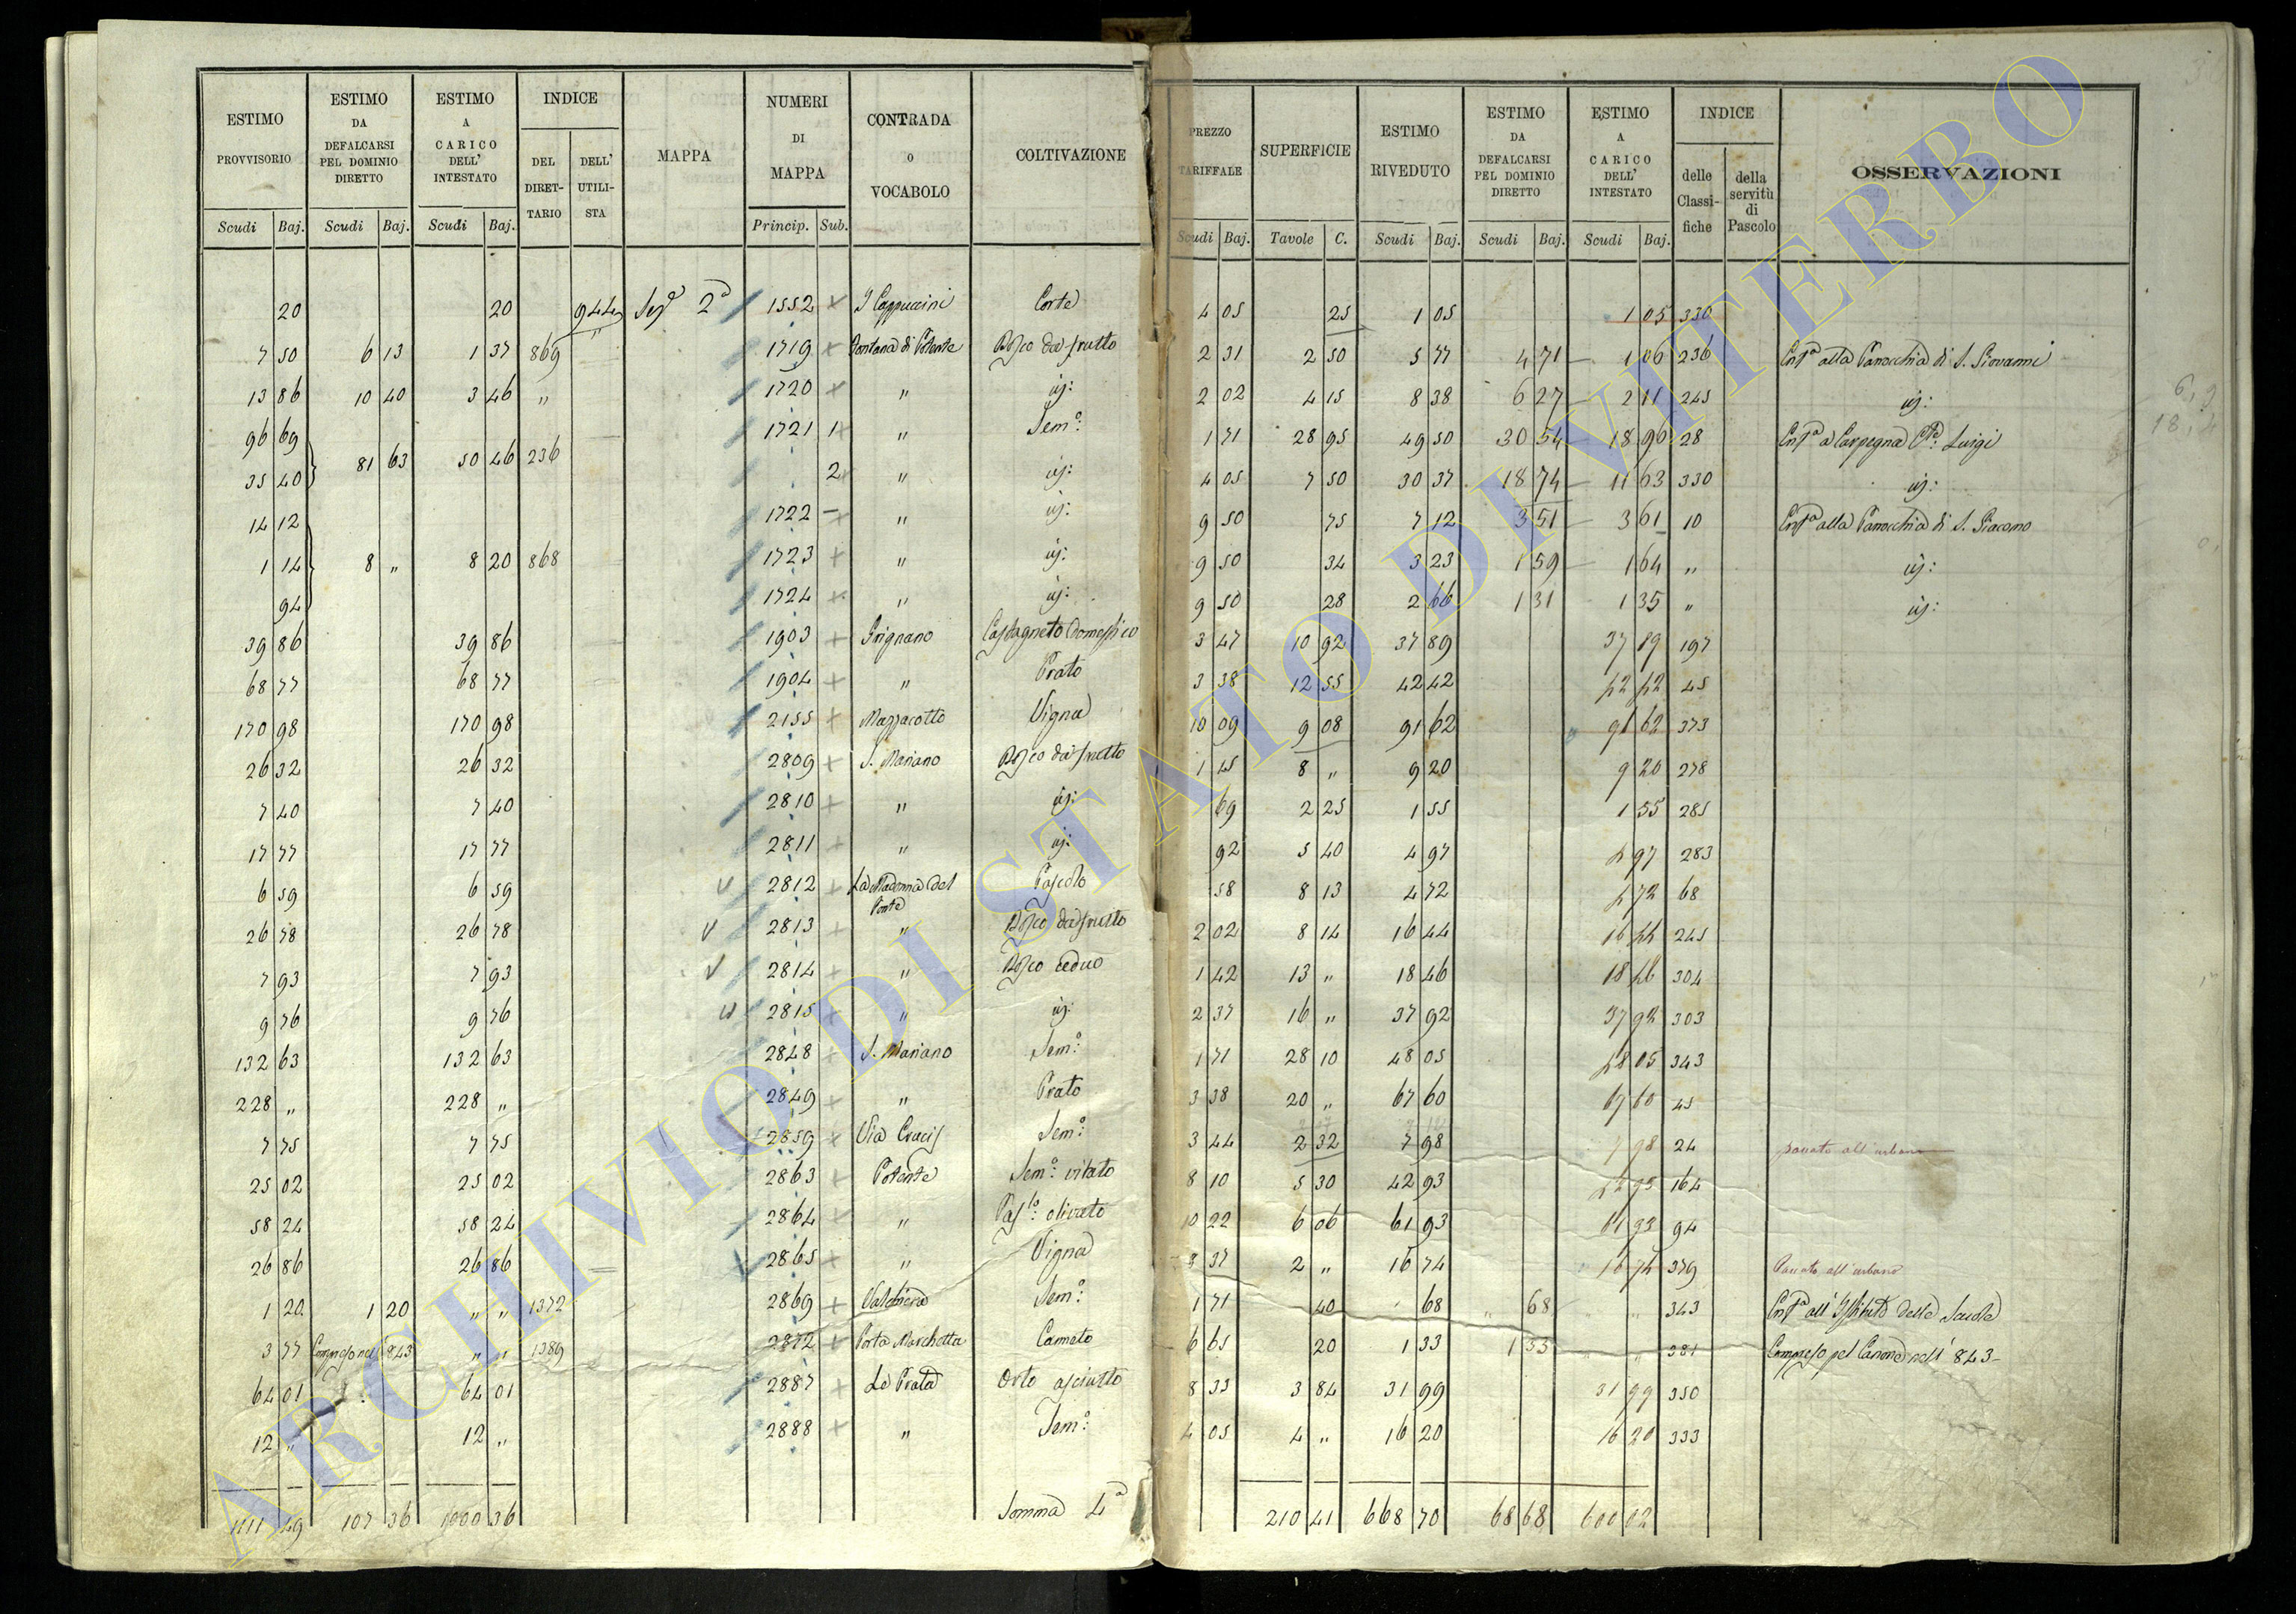 ESTIMO PROVVISORIO | ESTIMO DA DEFALCARSI PEL DOMINIO DIRETTO | ESTIMO A CARICO DELL' INTESTATO | INDICE | MAPPA | NUMERI DI MAPPA | CONTRADA O VOCABOLO | COLTIVAZIONE | PREZZO TARIFFALE | SUPERFICIE | ESTIMO RIVEDUTO | ESTIMO DA DEFALCARSI PEL DOMINIO DIRETTO | ESTIMO A CARICO DELL' INTESTATO | INDICE | OSSERVAZIONI
DEL DIRET-TARIO | DELL' UTILI-STA | delle Classi-fiche | della servitù di Pascolo
Scudi Baj. | Scudi Baj. | Scudi Baj. | Princip. Sub. | Scudi Baj. | Tavole C. | Scudi Baj. | Scudi Baj. | Scudi Baj.
20 | 20 | 944 | Sez.ª 2ª | 1552 | I Cappuccini | Corte | 4 05 | 25 | 1 05 | 1 05 | 330
7 50 | 6 13 | 1 37 | 869 | " | 1719 | Fontana di Potente | Bosco da frutto | 2 31 | 2 50 | 5 77 | 4 71 | 1 06 | 236 | Enf.ª alla Parrocchia di S. Giovanni
13 86 | 10 40 | 3 46 | " | 1720 | " | id: | 2 02 | 4 15 | 8 38 | 6 27 | 2 11 | 245 | id:
96 69 | 1721 1 | " | Sem.º | 1 71 | 28 95 | 49 50 | 30 54 | 18 96 | 28 | Enf.ª a Carpegna C.te Luigi
35 40 | 81 63 | 50 46 | 236 | 2 | " | id: | 4 05 | 7 50 | 30 37 | 18 74 | 11 63 | 330 | id:
14 12 | 1722 – | " | id: | 9 50 | 75 | 7 12 | 3 51 | 3 61 | 10 | Enf.ª alla Parrocchia di S. Giacomo
1 14 | 8 " | 8 20 | 868 | 1723 | " | id: | 9 50 | 34 | 3 23 | 1 59 | 1 64 | " | id:
94 | 1724 | " | id: | 9 50 | 28 | 2 66 | 1 31 | 1 35 | " | id:
39 86 | 39 86 | 1903 | Grignano | Castagneto domestico | 3 47 | 10 92 | 37 89 | 37 89 | 197
68 77 | 68 77 | 1904 | " | Prato | 3 38 | 12 55 | 42 42 | 42 42 | 45
170 98 | 170 98 | 2155 | Mazzacotto | Vigna | 10 09 | 9 08 | 91 62 | 91 62 | 373
26 32 | 26 32 | 2809 | S. Mariano | Bosco da frutto | 1 15 | 8 " | 9 20 | 9 20 | 278
7 40 | 7 40 | 2810 | " | id: | 69 | 2 25 | 1 55 | 1 55 | 285
17 77 | 17 77 | 2811 | " | id: | 92 | 5 40 | 4 97 | 4 97 | 283
6 59 | 6 59 | 2812 | La Madonna del Ponte | Pascolo | 58 | 8 13 | 4 72 | 4 72 | 68
26 78 | 26 78 | 2813 | " | Bosco da frutto | 2 02 | 8 14 | 16 44 | 16 44 | 245
7 93 | 7 93 | 2814 | " | Bosco ceduo | 1 42 | 13 " | 18 46 | 18 46 | 304
9 76 | 9 76 | 2815 | " | id: | 2 37 | 16 " | 37 92 | 37 92 | 303
132 63 | 132 63 | 2848 | S. Mariano | Sem.º | 1 71 | 28 10 | 48 05 | 48 05 | 343
228 " | 228 " | 2849 | " | Prato | 3 38 | 20 " | 67 60 | 67 60 | 45
7 75 | 7 75 | 2859 | Via Crucis | Sem.º | 3 44 | 2 32 | 7 98 | 7 98 | 24 | passato all'urbano
25 02 | 25 02 | 2863 | Potente | Sem.º vitato | 8 10 | 5 30 | 42 93 | 42 93 | 164
58 24 | 58 24 | 2864 | " | Pas.lo olivato | 10 22 | 6 06 | 61 93 | 61 93 | 94
26 86 | 26 86 | 2865 | " | Vigna | 8 37 | 2 " | 16 74 | 16 74 | 379 | Passato all'urbano
1 20 | 1 20 | " " | 1372 | 2869 | Valchiera | Sem.º | 1 71 | 40 | 68 | " 68 | " | 343 | Enf.ª all'Istituto delle Scuole
3 77 | Compreso nel 843 | " " | 1389 | 2872 | Porta Marchetta | Canneto | 6 65 | 20 | 1 33 | 1 33 | " " | 381 | Compreso pel Canone nell' 843
64 01 | 64 01 | 2887 | Le Prata | Orto asciutto | 8 33 | 3 84 | 31 99 | 31 99 | 350
12 " | 12 " | 2888 | " | Sem.º | 4 05 | 4 " | 16 20 | 16 20 | 333
1111 49 | 107 36 | 1000 36 | Somma 4ª | 210 41 | 668 70 | 68 68 | 600 02
ARCHIVIO DI STATO DI VITERBO